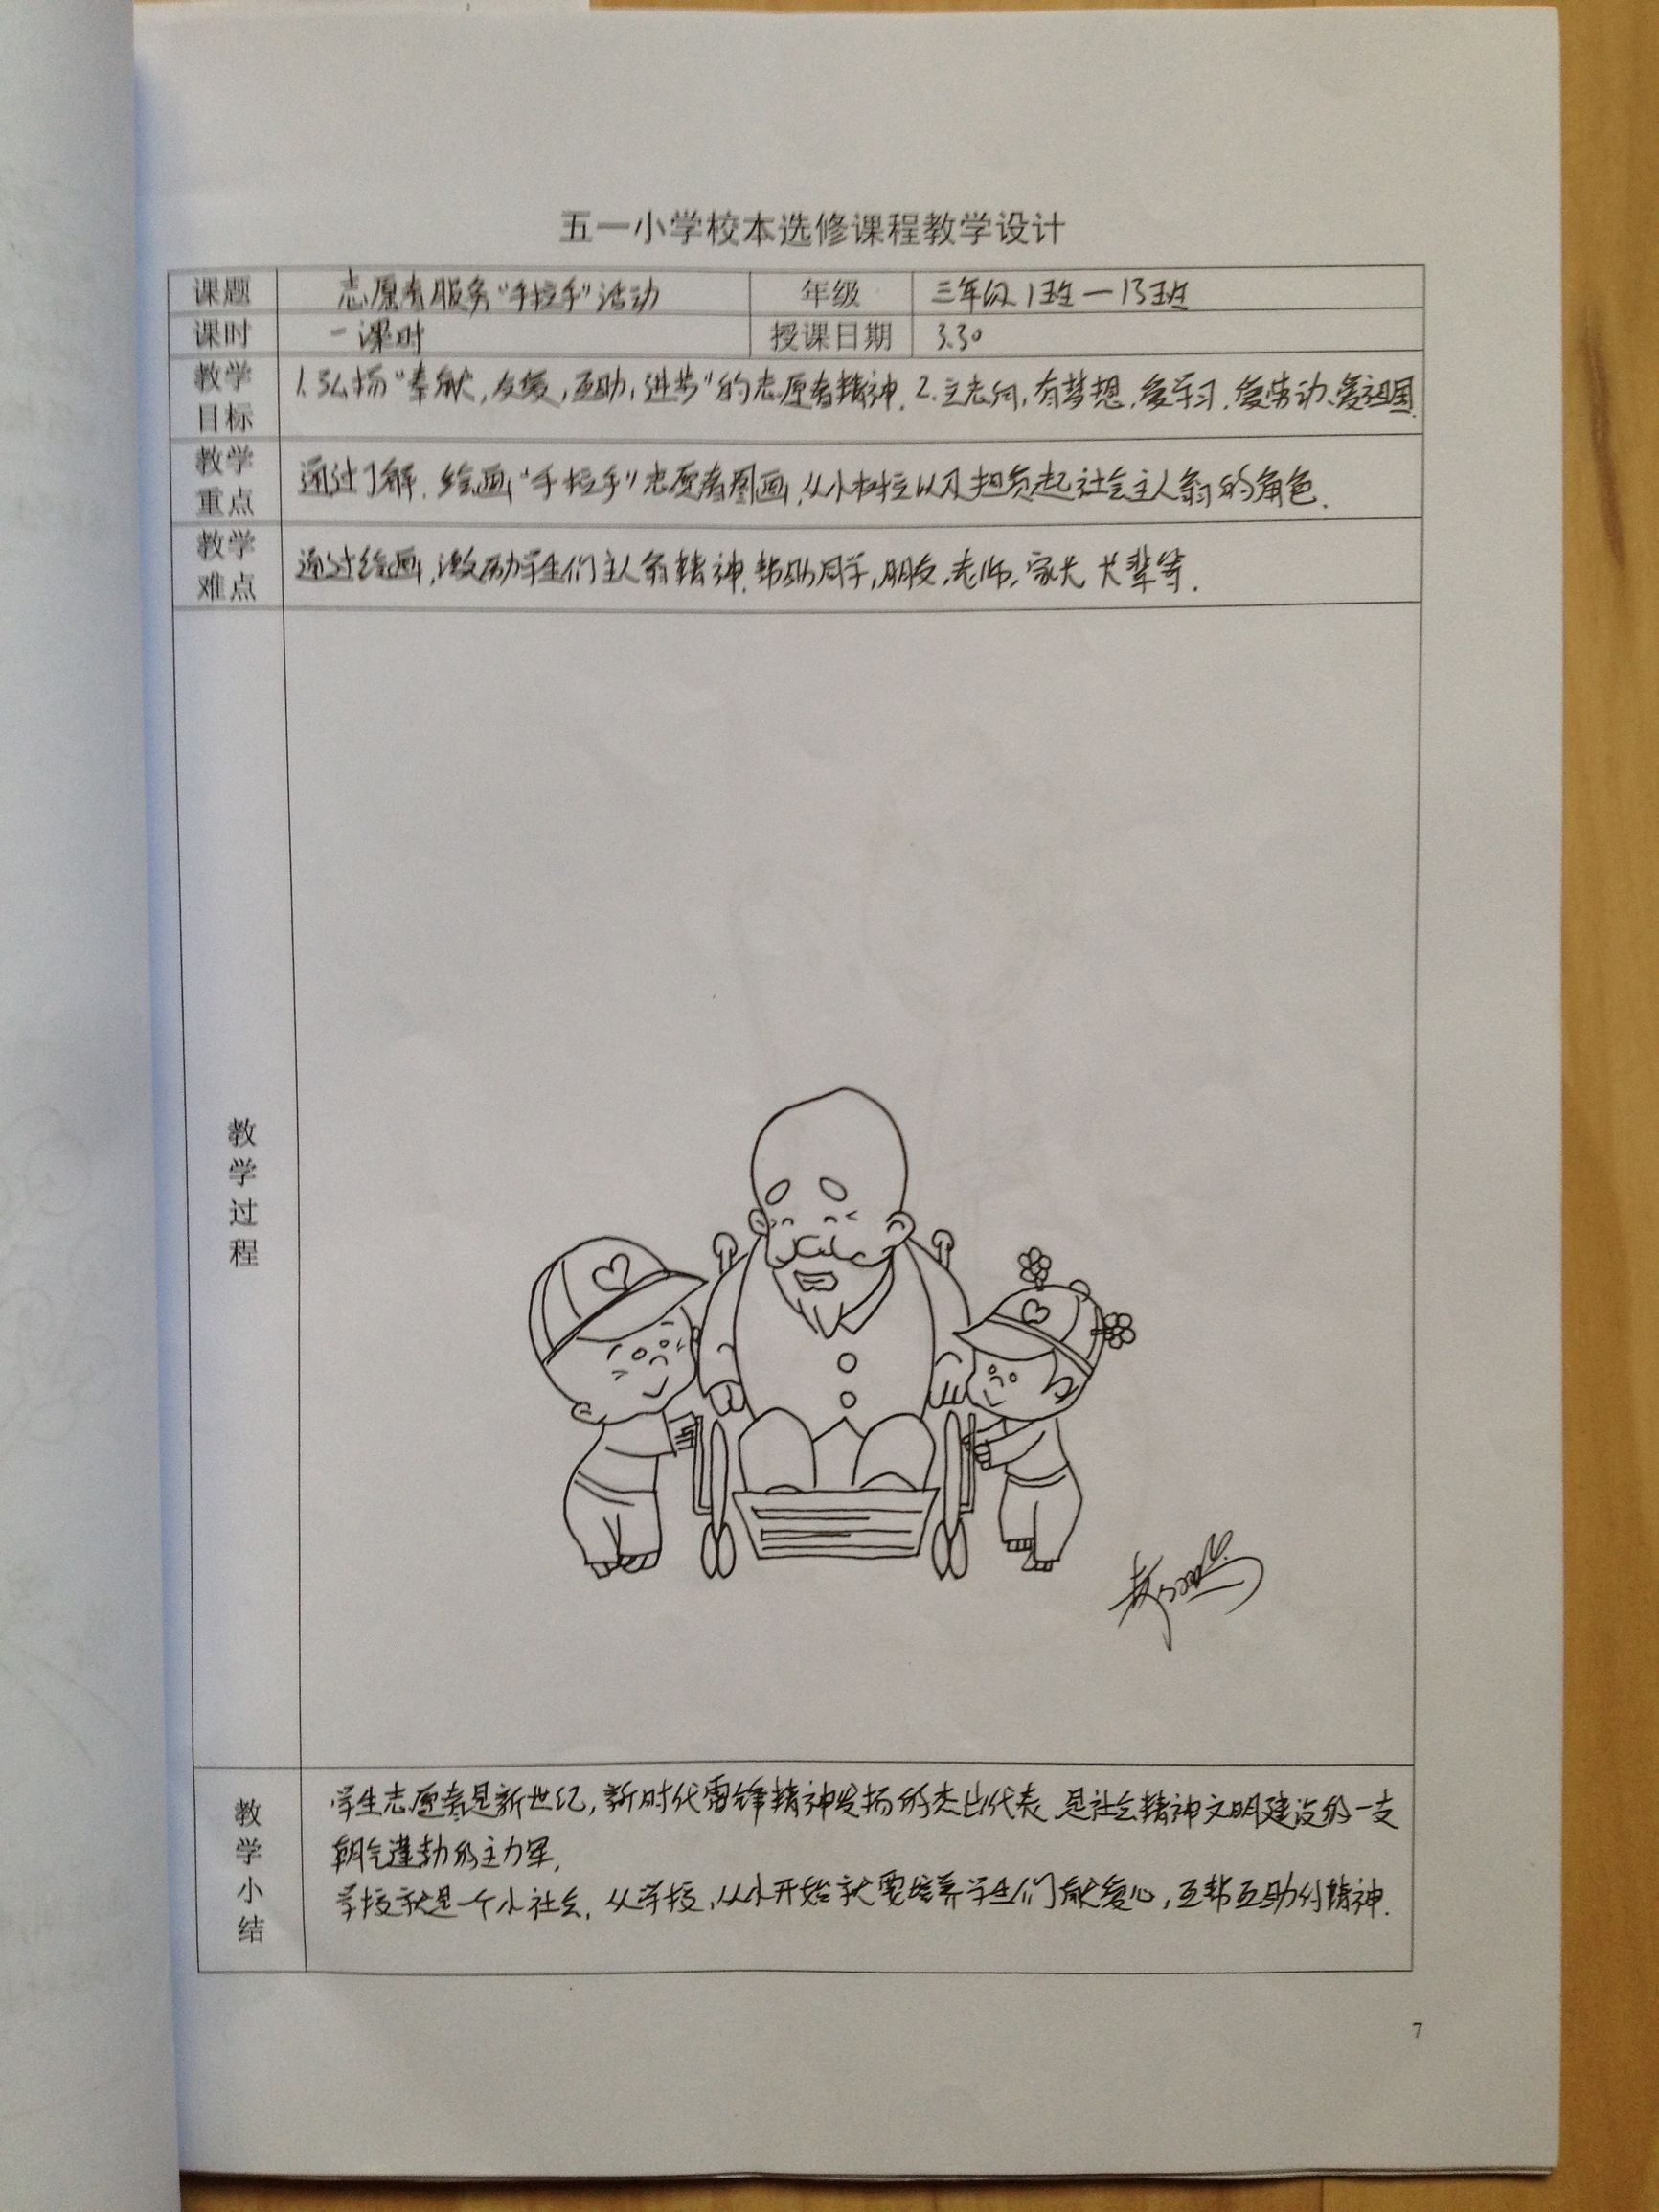 五一小学校本选修课程教学设计
课题 志愿者服务“手拉手”活动 年级 三年级1班—13班
课时 一课时 授课日期 3.30
教学目标 1.弘扬“奉献,友爱,互助,进步”的志愿者精神.2.立志向,有梦想,爱学习,爱劳动,爱祖国.
教学重点 通过了解.绘画“手拉手”志愿者图画,从小树立以及担负起社会主人翁的角色.
教学难点 通过绘画,激励学生们主人翁精神.帮助同学,朋友,老师,家长 长辈等.
教学过程
教学小结 学生志愿者是新世纪,新时代雷锋精神发扬的杰出代表 是社会精神文明建设的一支
朝气蓬勃的主力军,
学校就是一个小社会,从学校,从小开始就要培养学生们献爱心,互帮互助的精神.
7